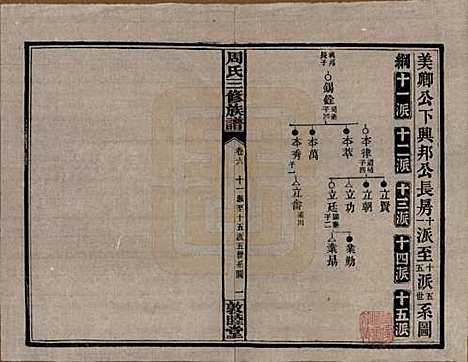 美卿公下興邦公長房十一派至十五派五世系圖
綱十一派 十二派 十三派 十四派 十五派
興邦長子
錫銓 子四
本律 子四
本萃
本萬
本秀 子一
立賢
立朝
立功
立廷 子二
立畬
業勤
業場
周氏三修族譜
卷六 十一派至十五派五世系圖 一
敦睦堂